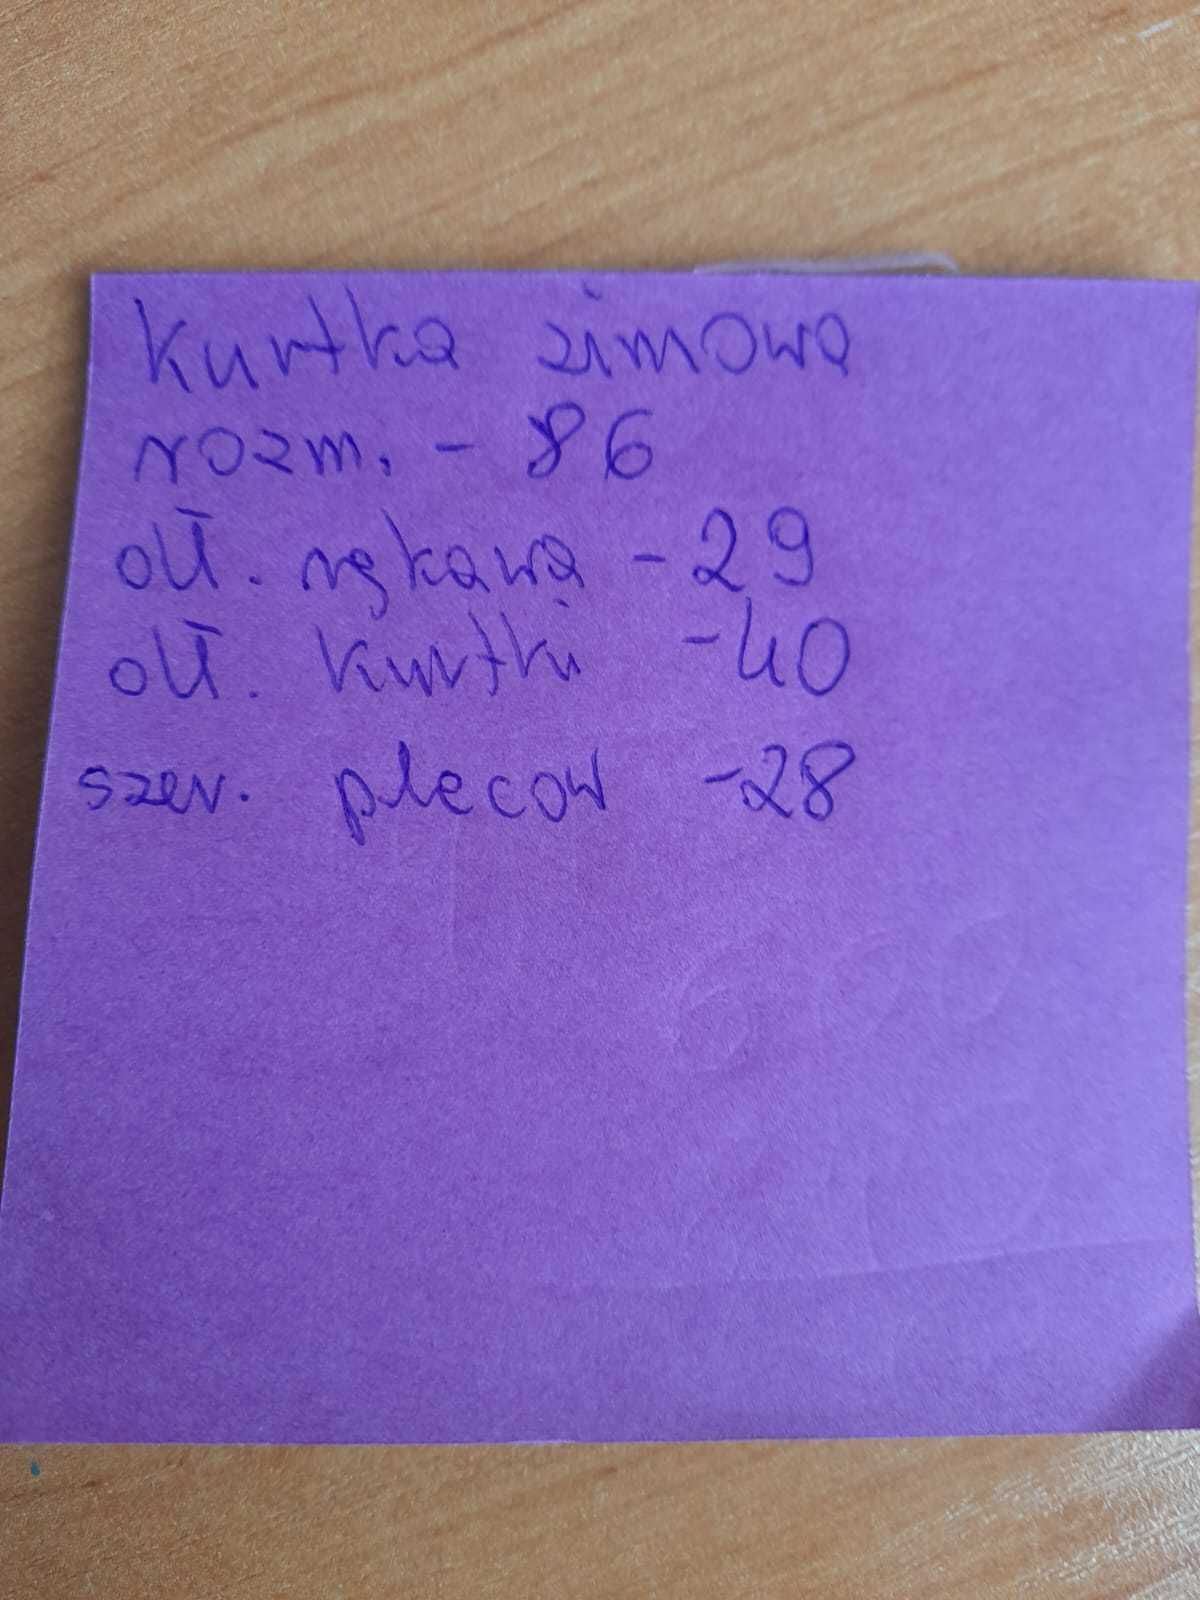 Kurtka zimowa
rozm. - 86
dł. rękawa - 29
dł. kurtki - 40
szer. plecow - 28